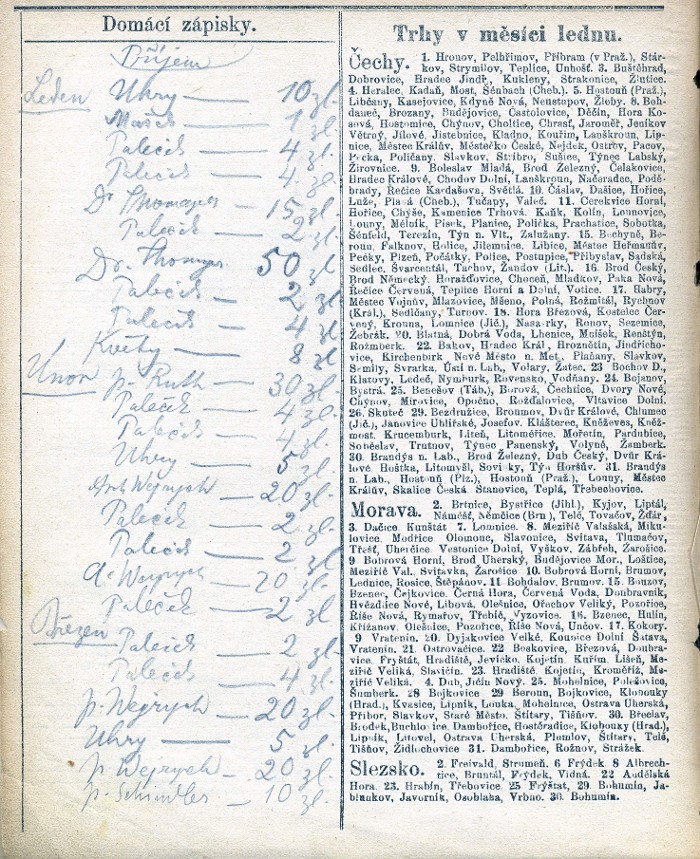 Domácí zápisky.
Příjem
Leden Uhry — 10 zl.
Mašek — 1 zl.
Paleček — 4 zl.
Paleček — 4 zl.
Dr. Thomayer — 15 zl.
Paleček — 2 zl.
Dr. Thomayer 50 zl.
Paleček — 2 zl.
Paleček — 4 zl.
Květy — 8 zl.
Únor p. Ruth — 30 zl.
Paleček — 4 zl.
Paleček — 4 zl.
Uhry — 5 zl.
Wejrych — 20 zl.
Paleček — 2 zl.
Paleček — 2 zl.
Wejrych — 20 zl.
Paleček — 2 zl.
Březen
Paleček — 2 zl.
Paleček — 4 zl.
p. Wejrych — 20 zl.
Uhry — 5 zl.
p. Wejrych — 20 zl.
p. Schindler — 10 zl.
Trhy v měsíci lednu.
Čechy. 1. Hronov, Pelhřimov, Příbram (v Praž.), Stár-
kov, Strymilov, Teplice, Unhošť. 3. Buštěhrad,
Dobrovice, Hradec Jindř., Kukleny, Strakonice, Žlutice.
4. Haralec, Kadaň, Most, Šénbach (Cheb.). 5. Hostouň (Praž.),
Libčany, Kasejovice, Kdyně Nová, Neustupov, Žleby. 8. Boh-
daneč, Brozany, Budějovice, Častolovice, Děčín, Hora Ko-
sová, Hostomice, Chýnov, Choltice, Chrasť, Jaroměř, Jeníkov
Větrný, Jílové, Jistebnice, Kladno, Kouřim, Lanškroun, Lip-
nice, Městec Králův, Městečko České, Nejdek, Ostrov, Pacov,
Pecka, Poličany, Slavkov, Stříbro, Sušice, Týnec Labský,
Žirovnice. 9. Boleslav Mladá, Brod Železný, Čelakovice,
Hradec Králové, Chodov Dolní, Lanškroun, Načeradec, Podě-
brady, Řečice Kardašova, Světlá. 10. Čáslav, Dašice, Hořice,
Luže, Planá (Cheb.), Tučapy, Valeč. 11. Cerekvice Horní,
Hořice, Chýše, Kamenice Trhová, Kaňk, Kolín, Lounovice,
Louny, Mělník, Písek, Planice, Polička, Prachatice, Sobotka,
Šénfeld, Terezín, Týn n. Vlt., Zalužany. 15. Bechyně, Be-
roun, Falknov, Holice, Jilemnice, Libice, Městec Heřmanův,
Pečky, Plzeň, Počátky, Police, Postupice, Přibyslav, Sadská,
Sedlec, Švarcentál, Tachov, Žandov (Lit.). 16. Brod Český,
Brod Německý, Horažďovice, Choceň, Mladkov, Paka Nová,
Řečice Červená, Teplice Horní a Dolní, Votice. 17. Habry,
Městec Vojnův, Mlazovice, Mšeno, Polná, Rožmitál, Rychnov
(Král.), Sedlčany, Turnov. 18. Hora Březová, Kostelec Čer-
vený, Krouna, Lomnice (Jič.), Nasavrky, Ronov, Sezemice,
Žebrák. 20. Blatná, Dobrá Voda, Lhenice, Mníšek, Renštýn,
Rožmberk. 22. Bakov, Hradec Král., Hroznětín, Jindřicho-
vice, Kirchenbirk Nové Město n. Met., Plaňany, Slavkov,
Semily, Svratka, Ústí n. Lab., Volary, Žatec. 23 Bochov D.,
Klatovy, Ledeč, Nymburk, Rovensko, Vodňany. 24. Bojanov,
Bystrá. 25. Benešov (Táb.), Borová, Čechtice, Dvory Nové,
Chýnov, Mirovice, Opočno, Rožďalovice, Vltavice Dolní.
26. Skuteč 29. Bezdružice, Broumov, Dvůr Králové, Chlumec
(Jič.), Janovice Uhlířské, Josefov, Klášterec, Kněževes, Kněž-
most, Krucemburk, Líteň, Litoměřice, Mořetín, Pardubice,
Soběslav, Trutnov, Týnec Panenský, Volyně, Žamberk.
30. Brandýs n. Lab., Brod Železný, Dub Český, Dvůr Krá-
lové, Hoštka, Litomyšl, Týn Horšův. 31. Brandýs
n. Lab., Hostouň (Plz.), Hostouň (Praž.), Louny, Městec
Králův, Skalice Česká, Stanovice, Teplá, Třebechovice.
Morava. 2. Brtnice, Bystřice (Jihl.), Kyjov, Liptál,
Náměšť, Němčice (Brn.), Telč, Tovačov, Žďár,
3. Dačice, Kunštát 7. Lomnice. 8. Meziříč Valašská, Miku-
lovice, Modřice, Olomouc, Slavonice, Svitava, Tlumačov,
Třešť, Uherčice, Vestonice Dolní, Vyškov, Zábřeh, Žarošice.
9 Bobrová Horní, Brod Uherský, Budějovice Mor., Loštice,
Meziříč Val., Svitavka, Žarošice 10. Bobrová Horní, Brumov,
Lednice, Rosice, Štěpánov. 11 Bohdalov, Brumov. 15. Bouzov,
Bzenec, Čejkovice, Černá Hora, Červená Voda, Doubravník,
Hvězdlice Nové, Libová, Olešnice, Ořechov Veliký, Pozořice,
Říše Nová, Rymařov, Třebíč, Vyzovice. 16. Bzenec, Hulín,
Křižanov, Olešnice, Pozořice, Říše Nová, Unčov. 17. Kokory.
9 Vratenín. 20. Dyjakovice Velké, Kounice Dolní Šatava,
Vratenín. 21. Ostrovačice. 22 Boskovice, Březová, Doubra-
vice, Fryšták, Hradiště, Jevíčko, Kojetín, Kuřim, Líšeň, Me-
ziříč Veliká, Slavičín. 23. Hradiště, Kojetín, Kroměříž, Me-
ziříč Veliká. 4. Dub, Jičín Nový. 25. Mohelnice, Polešovice,
Šumberk. 28 Bojkovice 29 Beroun, Bojkovice, Klobouky
(Hrad.), Kvasice, Lipník, Louka, Mohelnice, Ostrava Uherská,
Příbor, Slavkov, Staré Město, Štítary, Tišňov. 30. Břeclav,
Brodek, Buchlovice, Dambořice, Hostěradice, Klobouky (Hrad.),
Lipník, Litovel, Ostrava Uherská, Plumlov, Štítary, Telč,
Tišňov, Židlochovice 31. Dambořice, Rožnov, Strážek.
Slezsko. 2. Freivald, Strumeň. 6 Frýdek 8 Albrech-
tice, Bruntál, Frýdek, Vidná. 22 Andělská
Hora. 23. Hrabín, Třebovice. 25 Fryštát, 29. Bohumín, Ja-
blunkov, Javorník, Osoblaha, Vrbno. 30. Bohumín.